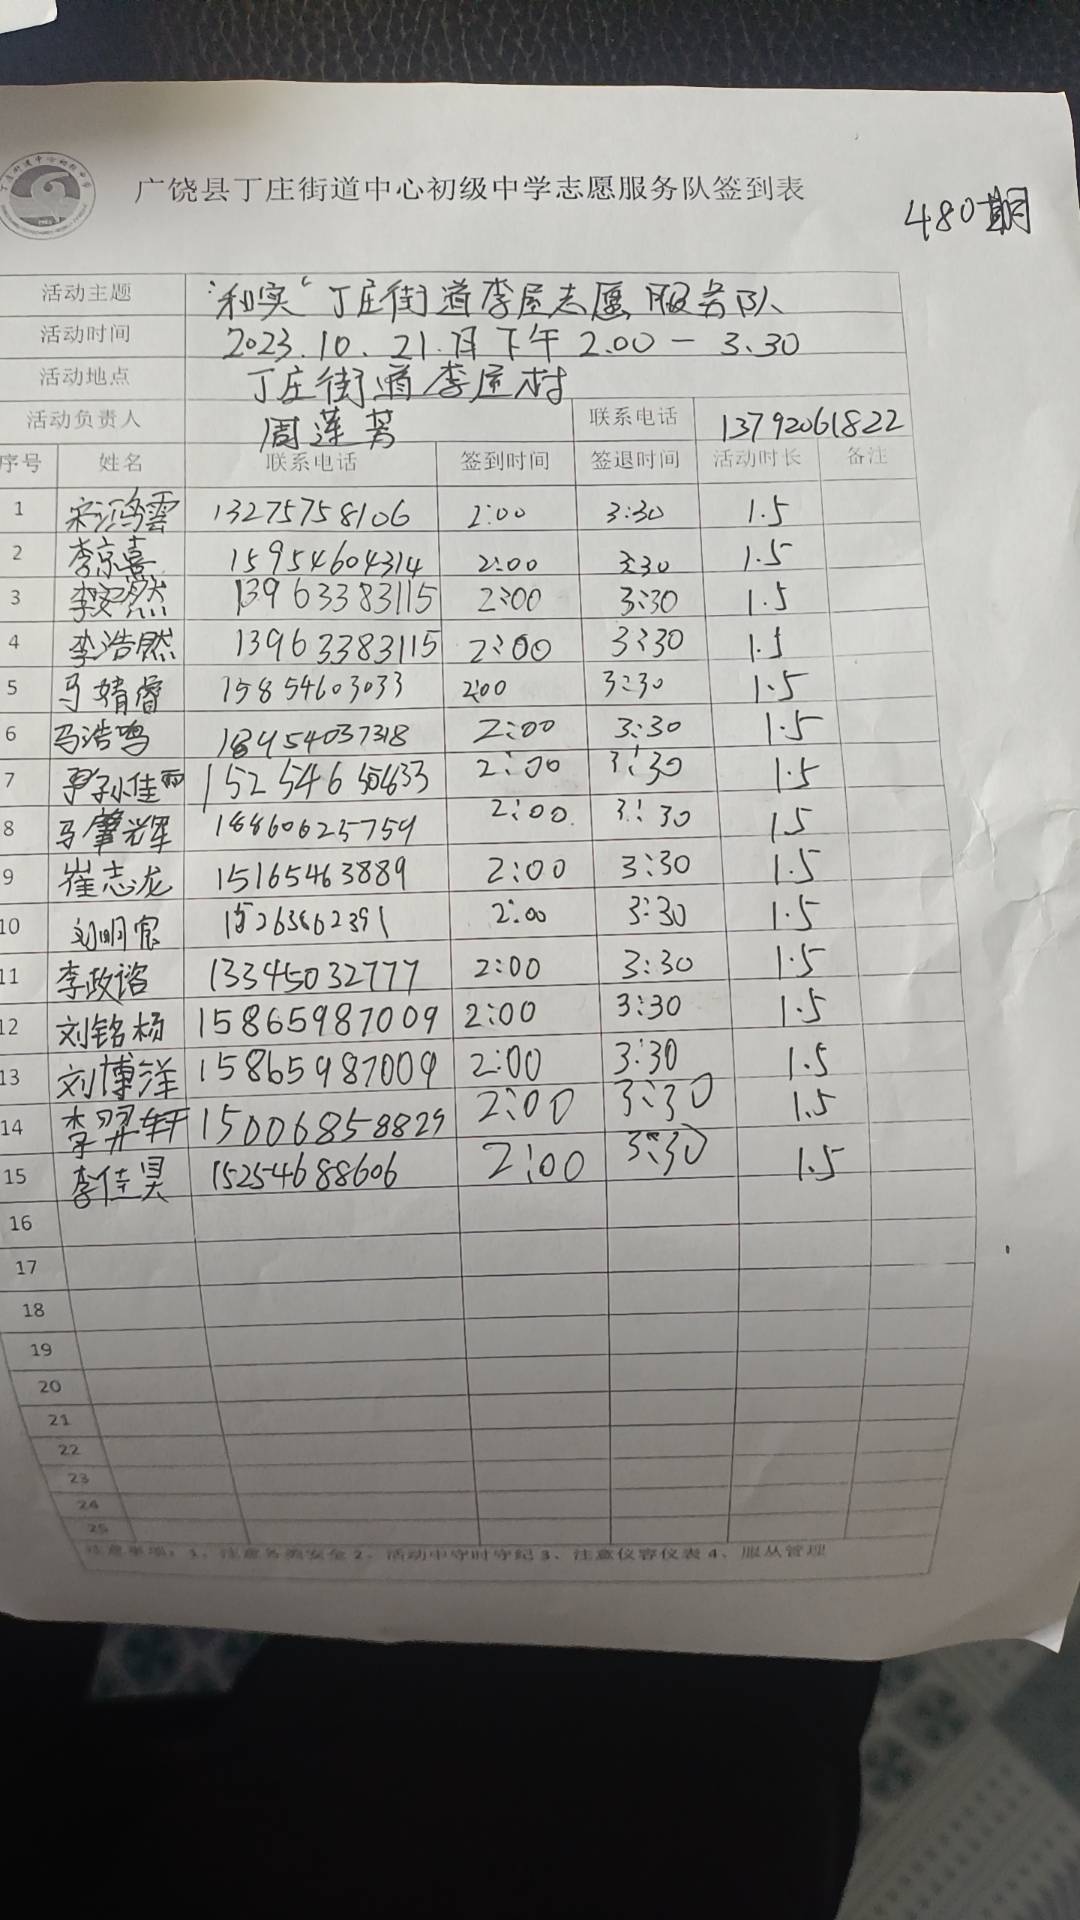 广饶县丁庄街道中心初级中学志愿服务队签到表
480期
活动主题 "和实"丁庄街道李屋志愿服务队
活动时间 2023.10.21.日下午2.00-3.30
活动地点 丁庄街道李屋村
活动负责人 周莲芳 联系电话 13792061822
序号 姓名 联系电话 签到时间 签退时间 活动时长 备注
1 宋鸿雲 13275758106 2:00 3:30 1.5
2 李京熹 15954604314 2:00 3:30 1.5
3 李安然 13963383115 2:00 3:30 1.5
4 李浩然 13963383115 2:00 3:30 1.5
5 马婧睿 15854603033 2:00 3:30 1.5
6 马浩鸣 18454037318 2:00 3:30 1.5
7 孙佳 2:00 3:30 1.5
8 马肇辉 18860623759 2:00 3:30 1.5
9 崔志龙 15165463889 2:00 3:30 1.5
10 刘明宸 15263862391 2:00 3:30 1.5
11 李政谘 13345032777 2:00 3:30 1.5
12 刘铭杨 15865987009 2:00 3:30 1.5
13 刘博洋 15865987009 2:00 3:30 1.5
14 李羿轩 15006858829 2:00 3:30 1.5
15 李佳昊 15254688606 2:00 3:30 1.5
16
17
18
19
20
21
22
23
24
25
注意事项：1、注意务类安全 2、活动中守时守纪 3、注意仪容仪表 4、服从管理